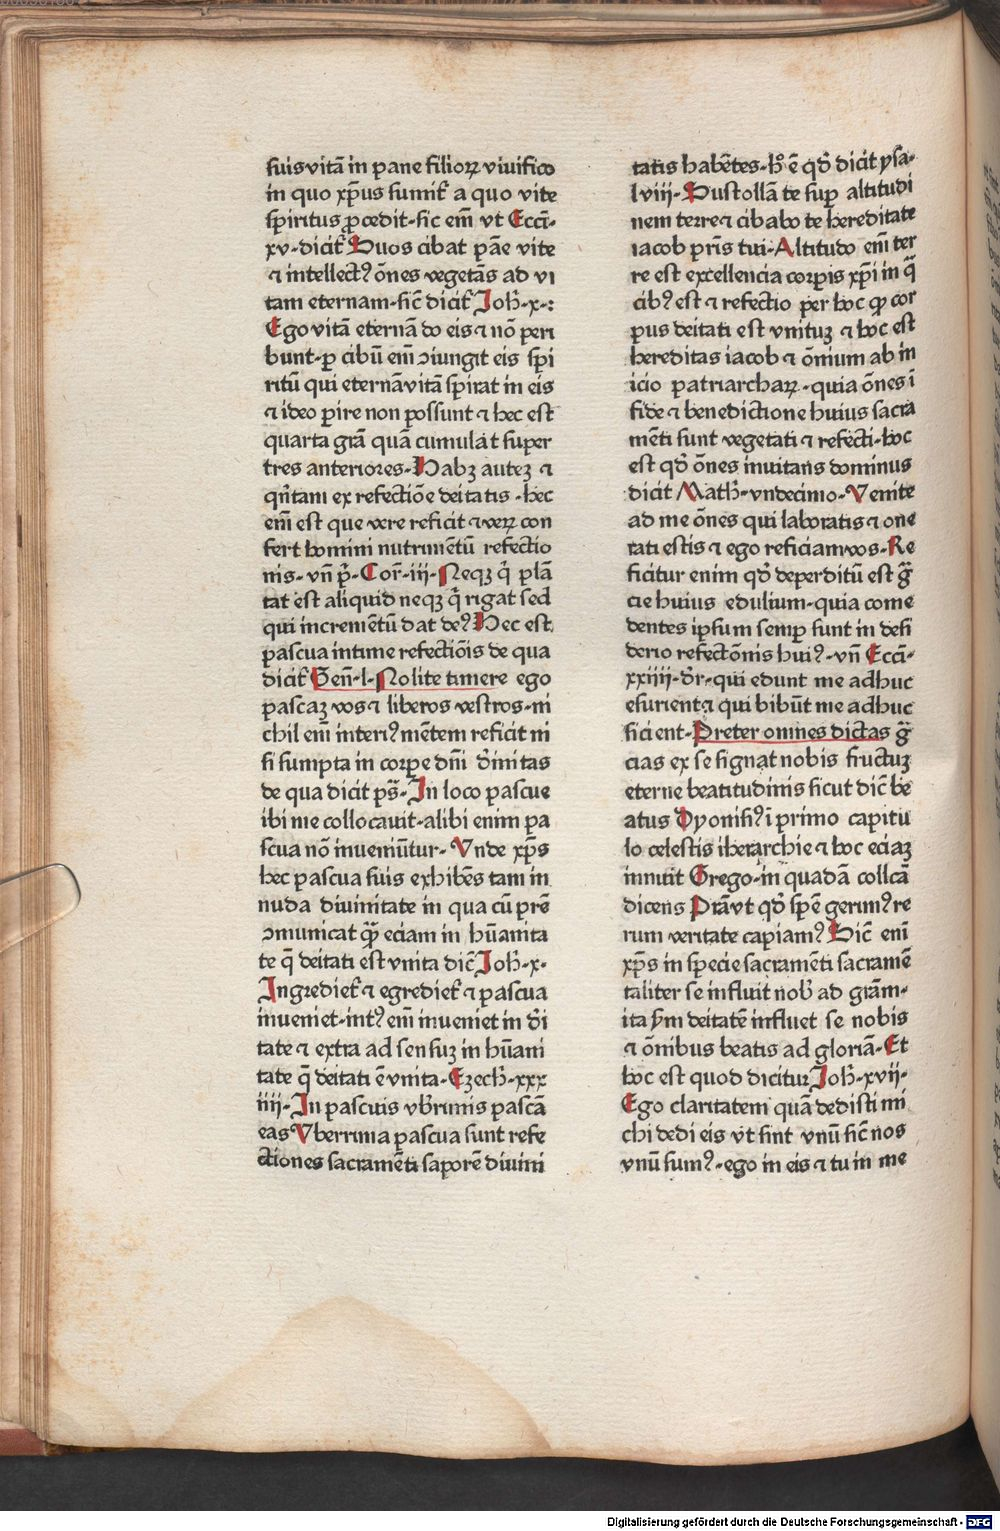 suis vitā in pane filioꝝ viuifico
in quo xp̄us sumit᷑ a quo vite
spiritus ꝓcedit·sic em̄ vt Ecci̅·
xv·dicit᷑ Suos cibat pāe vite
⁊ intellectꝰ ōnes vegetās ad vi
tam eternam·sic̄ dicit᷑ Joh̄·x·:
Ego vitā eternā do eis ⁊ nō peri
bunt·ꝑ cibū em̄ ↄiungit eis spi
ritū qui eternā vitā spirat in eis
⁊ ideo ꝑire non possunt ⁊ hec est
quarta grā quā cumulat super
tres anteriores·Habꝫ auteꝫ ⁊
qn̄tam ex refectiōe deitatis·hec
em̄ est que vere reficit ⁊ veꝝ con
fert homini nutrimētū refectio
nis·vn̄ p̄·Cor̄·iij·Neqꝫ q̄ plā
tat est aliquid neqꝫ q̄ rigat sed
qui incremētū dat deꝰ Hec est
pascua intime refectiōis de qua
dicit᷑ Gen̄·l·Nolite timere ego
pascaꝫ vos ⁊ liberos vestros·ni
chil em̄ interiꝰ mētem reficit ni
si sumpta in corꝑe dn̄i diuitas
de qua dicit pš·In loco pascue
ibi me collocauit·alibi enim pa
scua nō inueniūtur·Vnde xp̄s
hec pascua suis exhibēs tam in
nuda diuinitate in qua cū prē
ↄmunicat qꝫ eciam in hūanita
te q̄ deitati est vnita dic̄ Joh̄·x·
Ingrediet᷑ ⁊ egrediet᷑ ⁊ pascua
inueniet·intꝰ em̄ inueniet in di
tate ⁊ extra ad sensuꝫ in hūani
tate q̄ deitati ē vnita·Ezech̄·xxx
iiij·In pascuis vbrimis pascā
eas Vberrima pascua sunt refe
ctiones sacramēti saporē diuini
tatis habētes·h̄ ē qd̄ dicit ysa·
lviij·Sustollā te suꝑ altitudi
nem terre ⁊ cibabo te hereditate
iacob pr̄is tui·Altitudo em̄ ter
re est excellencia corꝑis xp̄i in q̄
cibꝰ est ⁊ refectio per hoc ꝙ cor
pus deitati est vnituꝫ ⁊ hoc est
hereditas iacob ⁊ ōnium ab in
icio patriarchaꝝ·quia ōnes ī
fide ⁊ benedictione huius sacra
mēti sunt vegetati ⁊ refecti·hoc
est qd̄ ōnes inuitans dominus
dicit Math̄·vndecimo·Venite
ad me ōnes qui laboratis ⁊ one
rati estis ⁊ ego reficiam vos·Re
ficitur enim qd̄ deperditū est gr̄
cie huius edulium·quia come
dentes ipsum semꝑ sunt in desi
derio refectōnis huiꝰ·vn̄ Ecci̅·
xxiiij·dr̄·qui edunt me adhuc
esurient ⁊ qui bibūt me adhuc
sicient·Preter omnes dictas gr̄
cias ex se signat nobis fructuꝫ
eterne beatitudinis sicut dic̄ be
atus Dyonisiꝰ ī primo capitu
lo celestis iherarchie ⁊ hoc eciaꝫ
innuit Grego·in quadā collcā
dicens Prā vt qd̄ spē gerimꝰ re
rum veritate capiamꝰ Sic̄ eni
xp̄s in specie sacramēti sacramē
taliter se influit nob̄ ad grām·
ita ꝩm deitatē influet se nobis
⁊ ōnibus beatis ad gloriā·Et
hoc est quod dicitur Joh̄·xvij·
Ego claritatem quā dedisti mi
chi dedi eis vt sint vnū sic̄ nos
vnū sumꝰ·ego in eis ⁊ tu in me
Digitalisierung gefördert durch die Deutsche Forschungsgemeinschaft - DFG